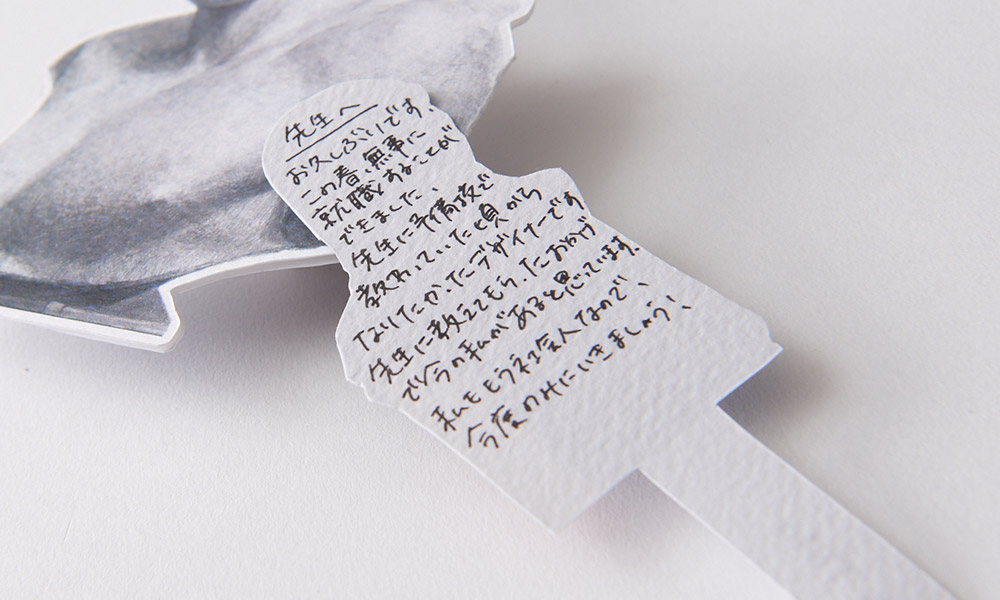 先生へ
お久しぶりです。
この春、無事に
就職することが
できました、
先生に予備校で
教わっていた頃から
なりたかったデザイナーです
先生に教えてもらったおかげ
で今の私があると思っています。
私ももう社会人なので、
今度のみにいきましょう!